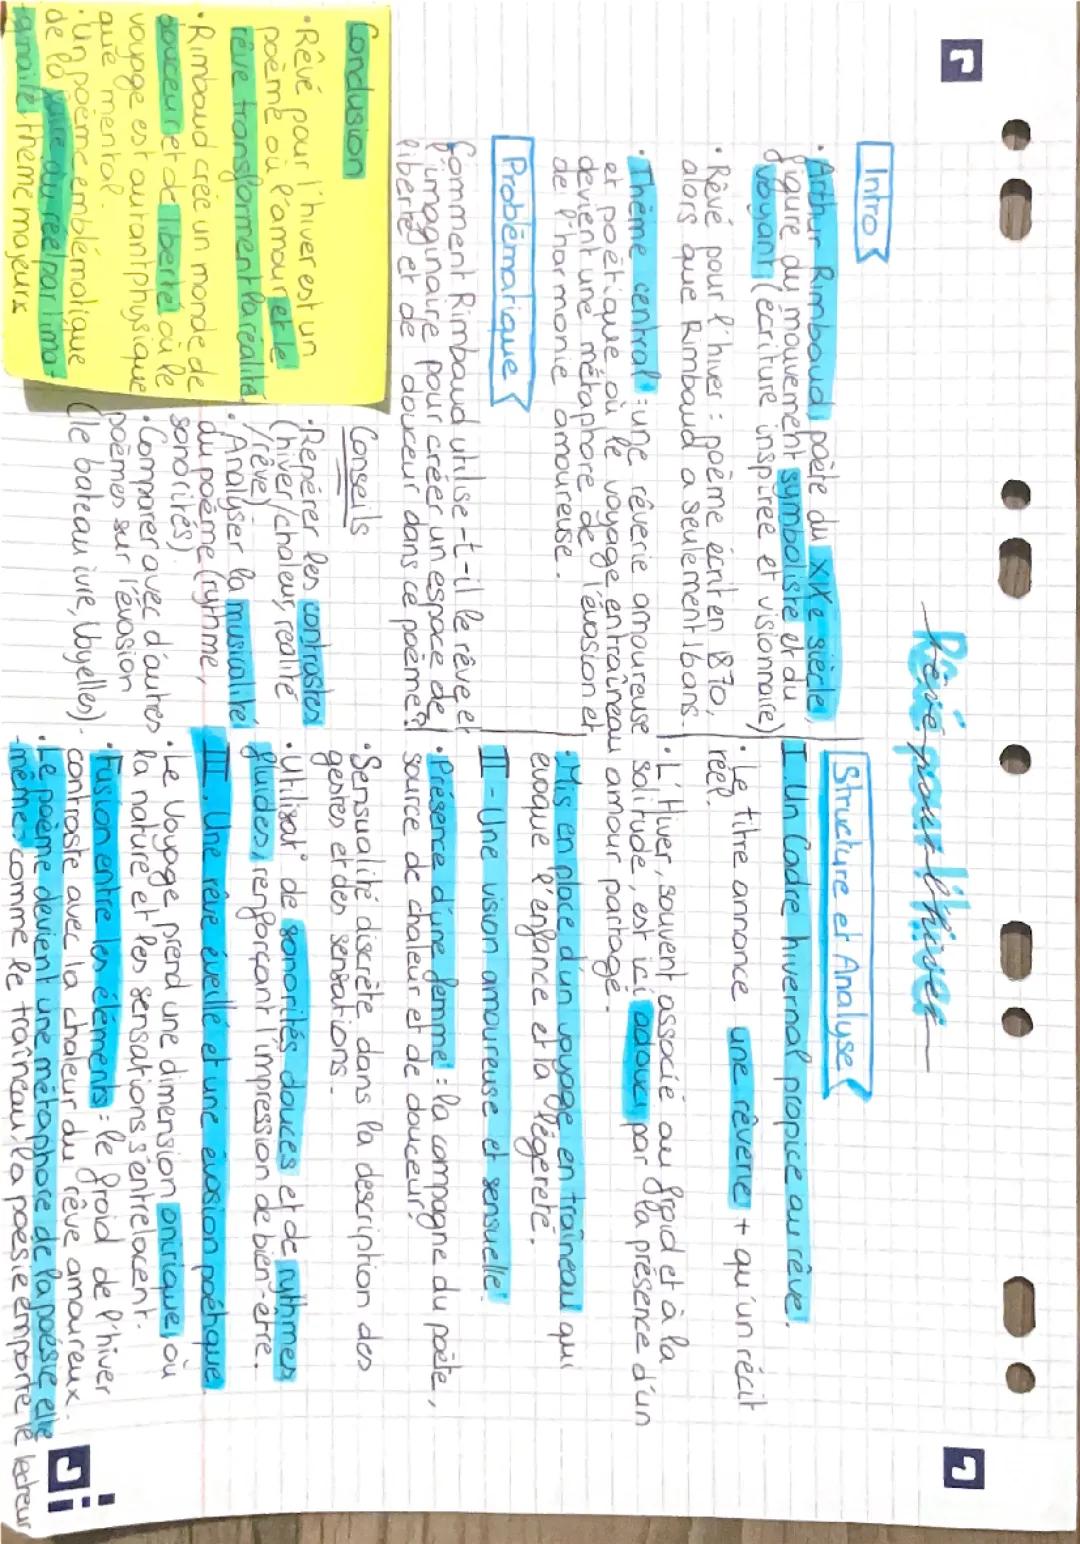 Rêvé pour l'hiver
Intro
• Arthur Rimbaud, poète du XIXe siècle,
figure du mouvement symboliste et du
voyant (écriture inspirée et visionnaire)
• Rêvé pour l'hiver : poème écrit en 1870,
alors que Rimbaud a seulement 16ans.
• Thème central : une rêverie amoureuse
et poétique où le voyage en traîneau
devient une métaphore de l'évasion et
de l'harmonie amoureuse.
Problématique
Comment Rimbaud utilise-t-il le rêve et
l'imaginaire pour créer un espace de
liberté et de douceur dans ce poème?
Conclusion
• Rêvé pour l'hiver est un
poème où l'amour et le
rêve transforment la réalité
• Rimbaud crée un monde de
douceur et de liberté où le
voyage est autant physique
que mental.
• Un poème emblématique
de la du réel par l'ima-
thème majeurx
Conseils
• Repérer les contrastes
(hiver/chaleur, réalité
/rêve)
• Analyser la musicalité
du poème (rythme,
sonorités)
• Comparer avec d'autres
poèmes sur l'évasion
(le bateau ivre, Voyelles)
Structure et Analyse
I. Un Cadre hivernal propice au rêve.
• Le titre annonce une rêverie + qu'un récit
réel.
• L'Hiver, souvent associé au froid et à la
solitude, est ici adouci par la présence d'un
amour partagé.
• Mis en place d'un voyage en traîneau qui
évoque l'enfance et la légèreté.
II - Une vision amoureuse et sensuelle.
• Présence d'une femme : la compagne du poète,
source de chaleur et de douceur.
• Sensualité discrète dans la description des
gestes et des sensations.
• Utilisat° de sonorités douces et de rythmes
fluides, renforçant l'impression de bien-être.
III. Une rêve éveillé et une évasion poétique.
• Le Voyage prend une dimension onirique, où
la nature et les sensations s'entrelacent.
• Fusion entre les éléments : le froid de l'hiver
contraste avec la chaleur du rêve amoureux.
• Le poème devient une métaphore de la poésie elle
-même, comme le traîneau, la poésie emporte le lecteur